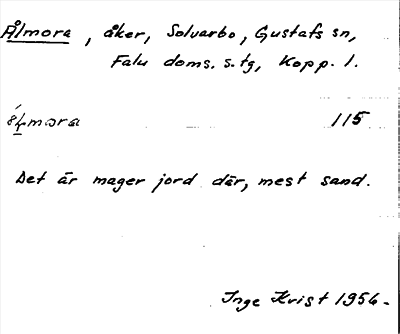 Ålmora, åker, Solvarbo, Gustafs sn,
Falu doms. s. tg, Kopp. l.
115
Det är mager jord där, mest sand.
Inge Kvist 1956.